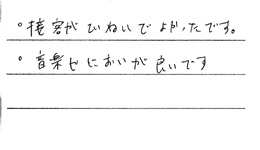 。接客がていねいでよかったです。
。音楽もにおいが良いです